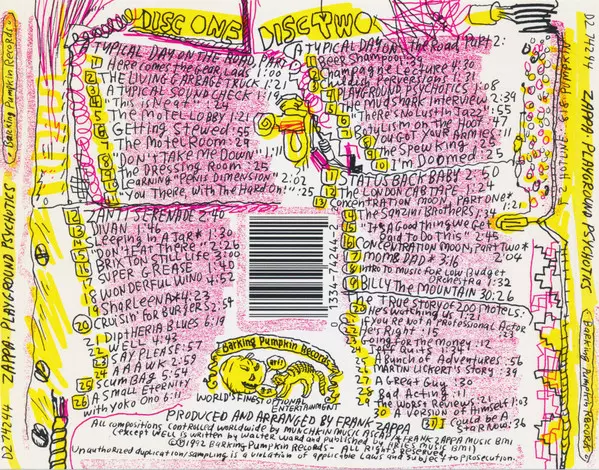 Barking Pumpkin Records
ZAPPA: PLAYGROUND PSYCHOTICS
D2 74244
DISC ONE
A TYPICAL DAY ON THE ROAD, PART 1
1 Here Comes the Gear, Lads 1:00
2 THE LIVING GARBAGE TRUCK 1:21
3 A TYPICAL SOUND CHECK 1:19
4 "This is Neat" :24
5 The MOTEL LOBBY 1:21
6 Getting stewed :55
7 The Motel Room :29
8 "DON'T TAKE ME DOWN" 1:11
9 The Dressing Room :25
10 Learning "PENIS DIMENSION" 2:02
11 "You There, With The Hard On!" :25
12 ZANTI SERENADE 2:40
13 DIVAN :46
14 Sleeping In A Jar* 1:30
15 "DON'T EAT THERE" 2:26
16 BRIXTON STILL LIFE 3:00
17 SUPER GREASE 1:40
18 WONDERFUL WINO 4:52
19 SHARLEENA* 4:23
20 Cruisin' for Burgers 2:54
21 DIPTHERIA BLUES 6:19
22 WELL 4:43
23 SAY PLEASE :57
24 AAAWK 2:59
25 Scum BAG 5:54
26 A Small ETERNITY
with Yoko Ono 6:11
DISC TWO
A TYPICAL DAY on The Road, Part 2:
1 Beer Shampoo :39
2 Champagne Lecture 4:30
3 Childish Perversions 1:31
4 PLAYGROUND PSYCHOTICS 1:08
5 The Mudshark Interview 2:39
6 "There's No Lust in Jazz" :55
7 Botulism on the Hoof :47
8 YOU GOT YOUR ARMIES :11
9 The Spew King :25
10 I'm Doomed :25
11 STATUS BACK BABY 2:50
12 The LONDON CAB TAPE 1:24
13 Concentration MOON, PART ONE* 1:20
14 The Sanzini Brothers 1:34
15 "It's a Good thing we Get
Paid to Do This" 2:45
16 CONCENTRATION MOON, PART TWO* 2:04
17 MOM & DAD* 3:16
18 INTRO TO MUSIC FOR Low Budget
Orchestra 1:32
19 BILLY THE MOUNTAIN 30:26
The TRUE STORY OF 200 MOTELS:
20 He's watching us 1:21
21 If You're Not a Professional Actor :23
22 He's Right :15
23 Going for the money :12
24 Jeff Quits 1:34
25 A Bunch of Adventures :56
26 MARTIN LICKERT'S STORY :39
27 A Great Guy :30
28 Bad Acting :11
29 The WORST REVIEWS :21
30 A VERSION OF Himself 1:03
31 I Could Be A
Star Now :36
0 1334-74244-2
Barking Pumpkin Records
arf!
WORLD'S FINEST OPTIONAL
ENTERTAINMENT
PRODUCED AND ARRANGED BY FRANK ZAPPA
All compositions controlled worldwide by MUNCHKIN MUSIC ASCAP
©1992 BARKING PUMPKIN RECORDS - ALL RIGHTS RESERVED
Unauthorized duplication/sampling is a violation of applicable laws and subject to prosecution.
D2 74244
ZAPPA: PLAYGROUND PSYCHOTICS
Barking Pumpkin Records